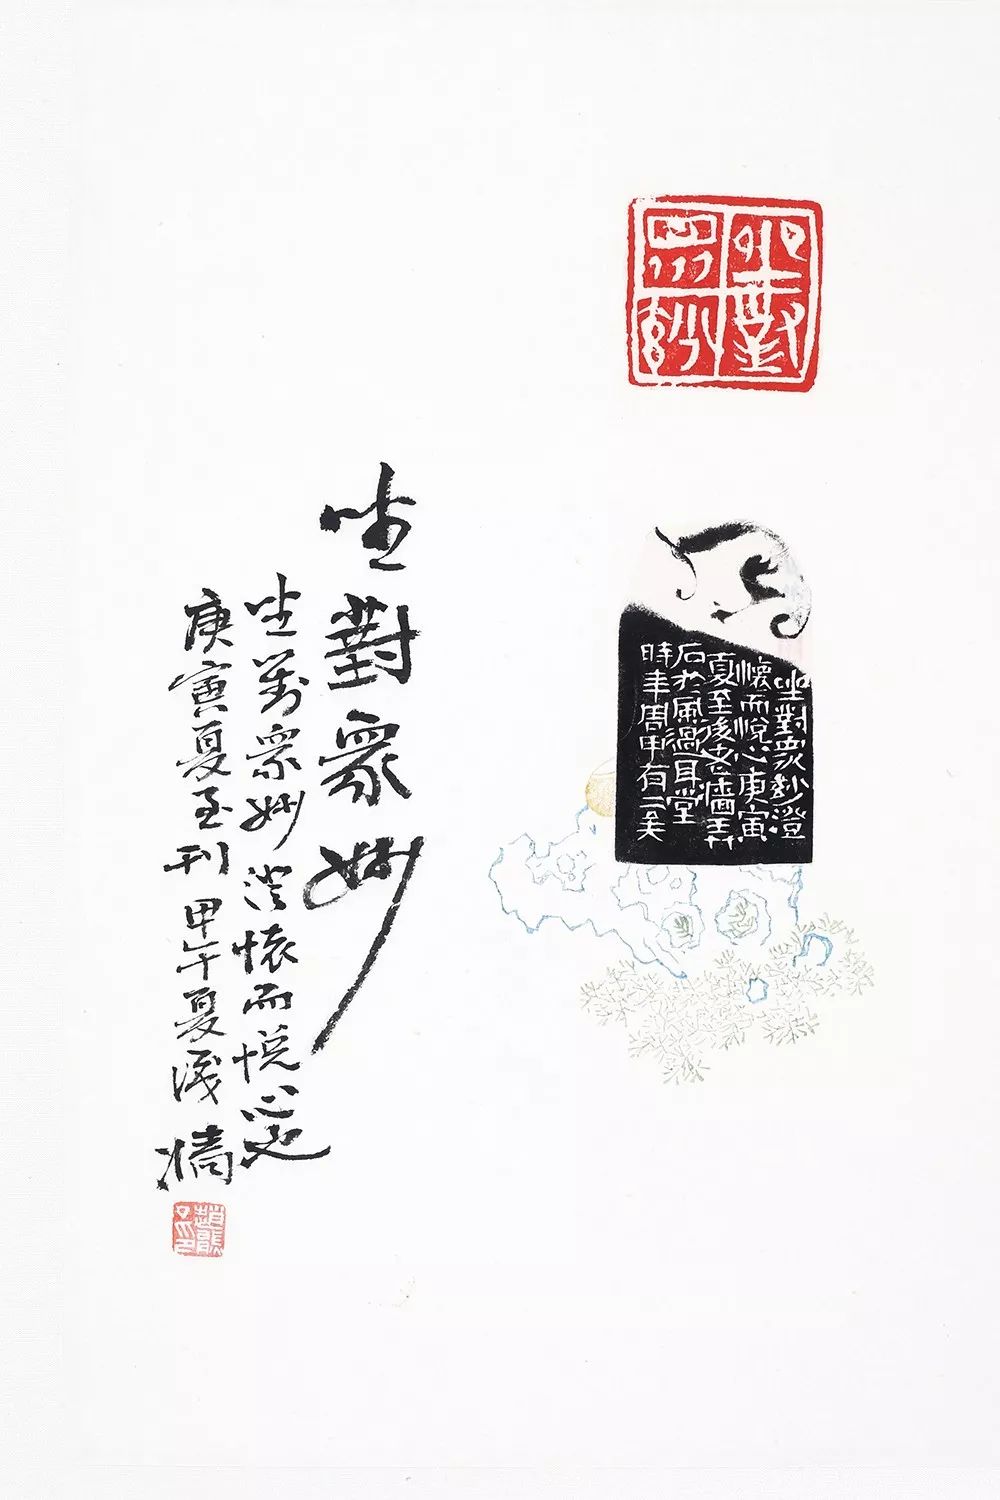 坐對
眾妙
坐對眾妙澄
懷而悅心庚寅
夏至後老牆弄
石於風過耳堂
時年周甲有二矣
坐對眾妙
坐對眾妙澄懷而悅心也
庚寅夏至刊甲午夏識牆
趙熊